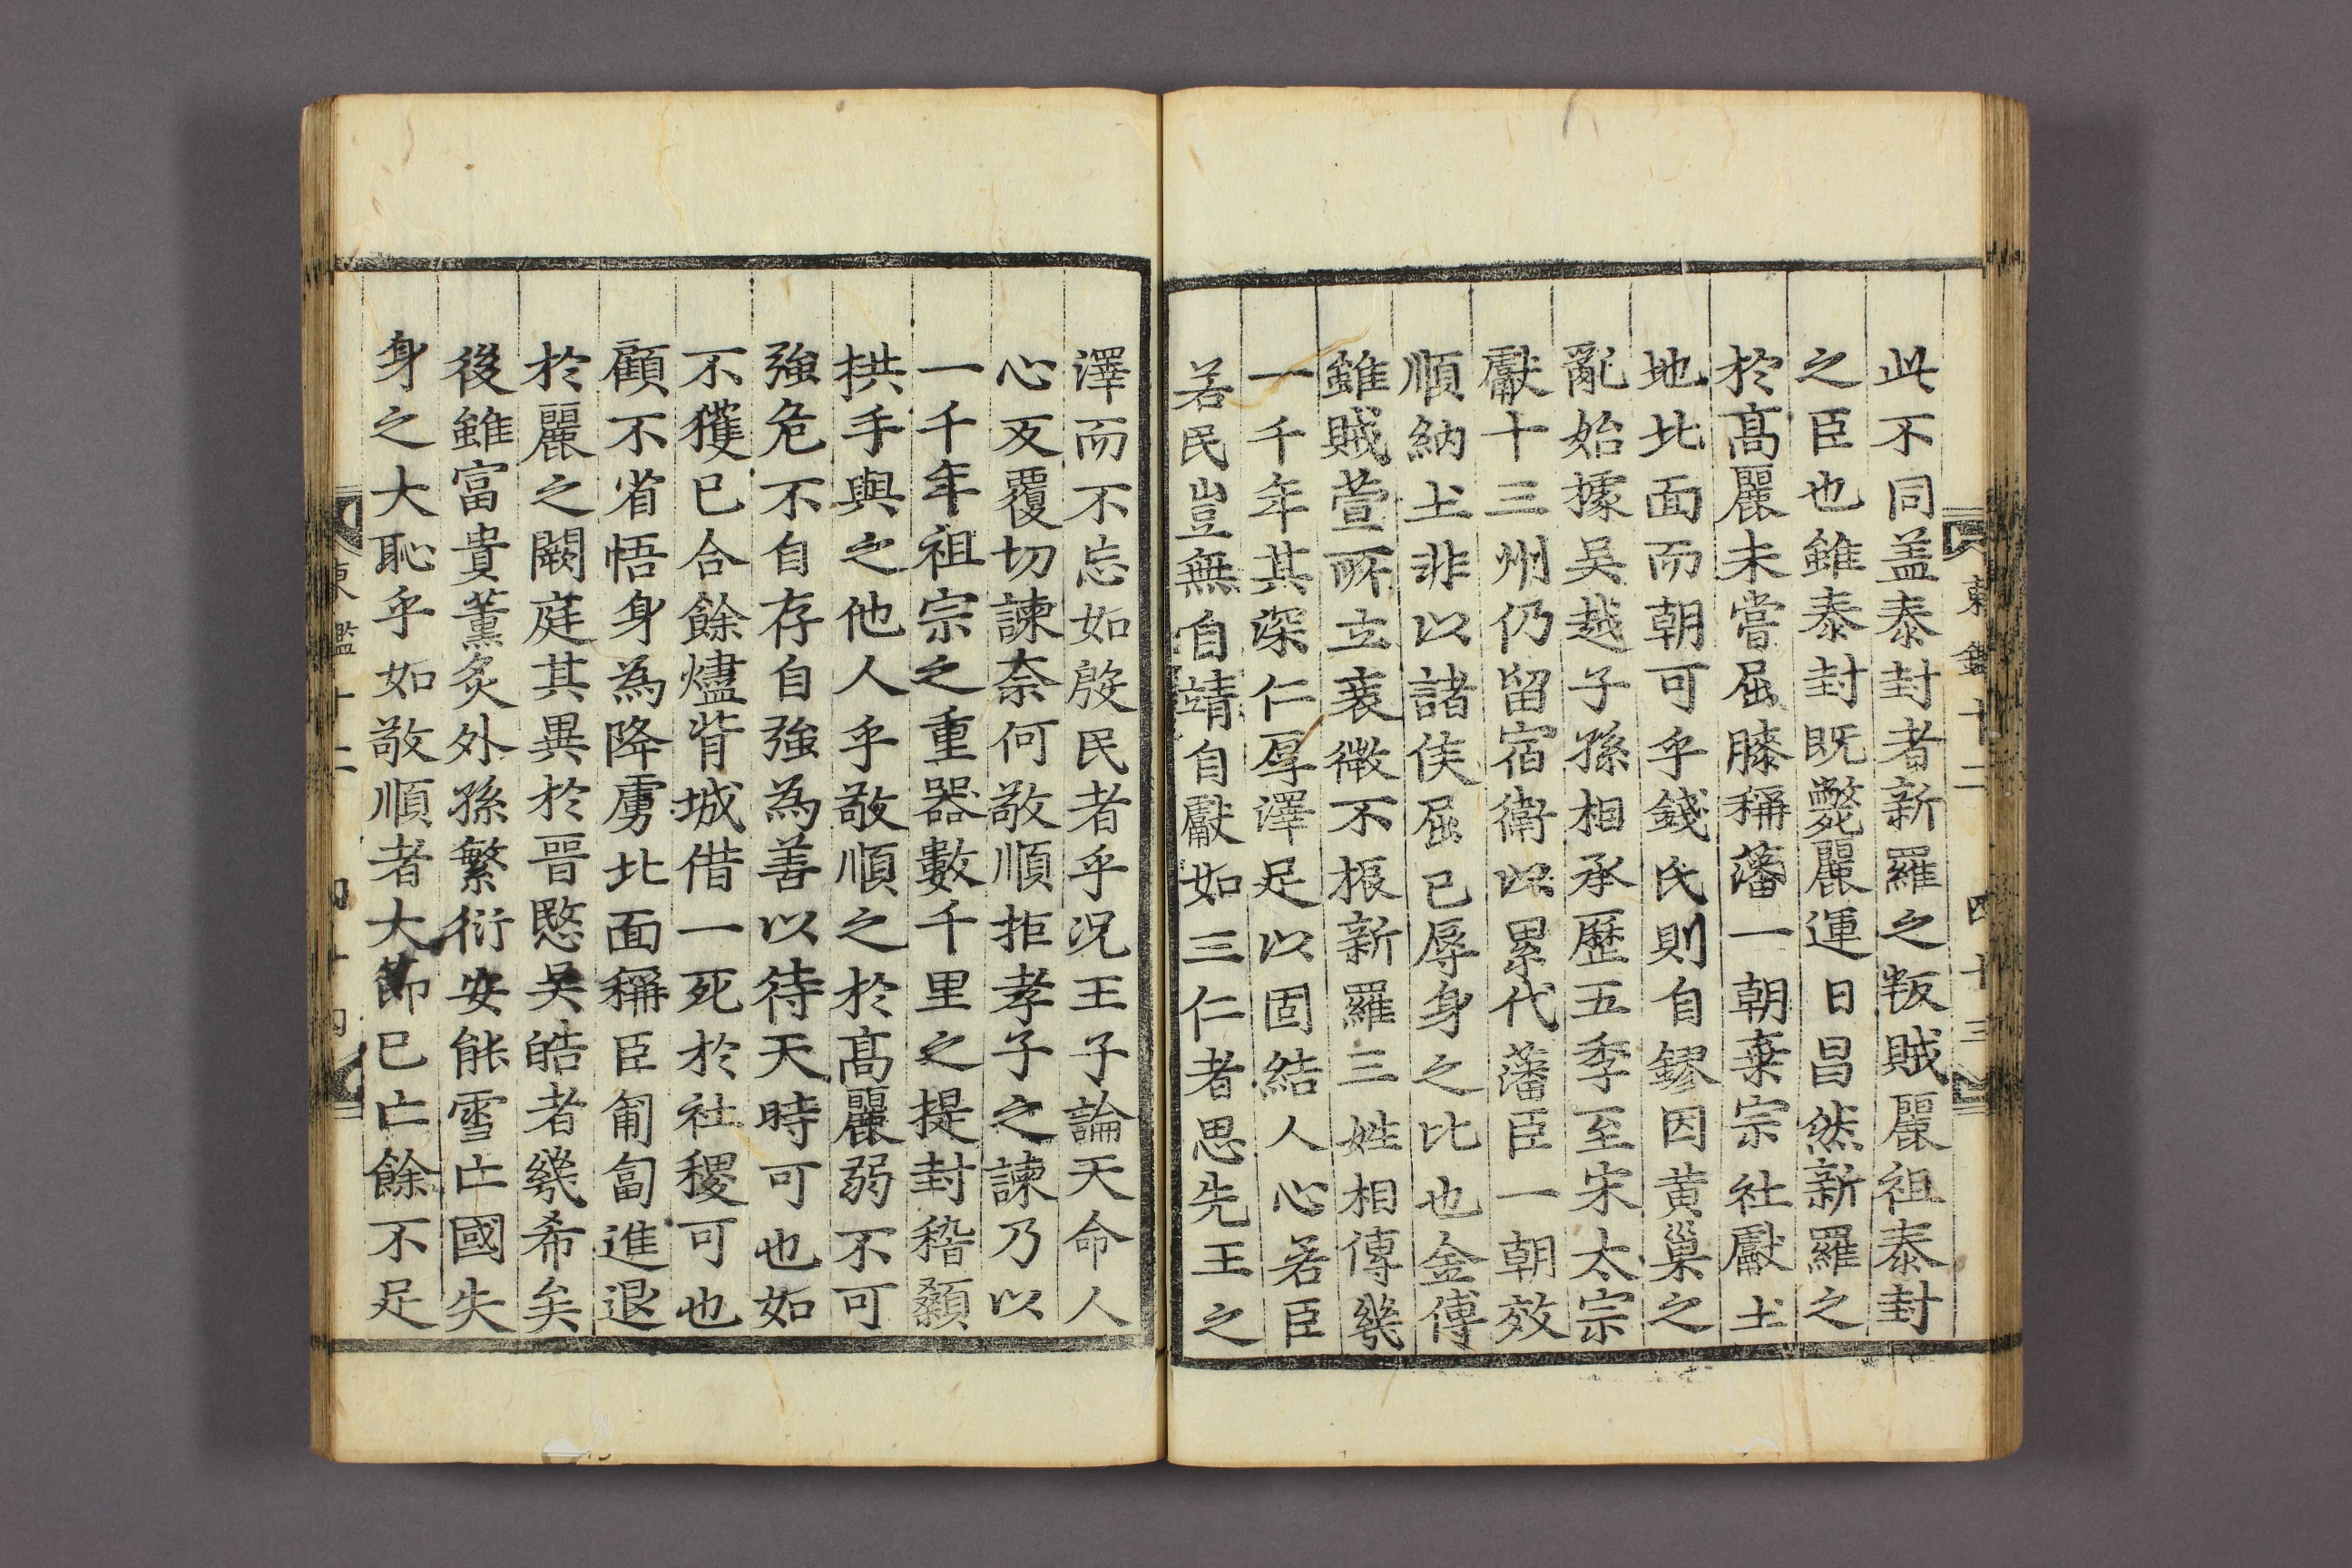 東鑑十二 四十三
此不同盖泰封者新羅之叛賊麗祖泰封
之臣也雖泰封既斃麗運日昌然新羅之
於高麗未嘗屈膝稱藩一朝棄宗社獻土
地北面而朝可乎錢氏則自鏐因黃巢之
亂始據吳越子孫相承歷五季至宋太宗
獻十三州仍留宿衛以累代藩臣一朝效
順納土非以諸侯屈已辱身之比也金傅
雖賊萱所立衰微不振新羅三姓相傳幾
一千年其深仁厚澤足以固結人心若臣
若民豈無自靖自獻如三仁者思先王之
澤而不忘如殷民者乎况王子論天命人
心反覆切諫奈何敬順拒孝子之諫乃以
一千年祖宗之重器數千里之提封稽顙
拱手與之他人乎敬順之於高麗弱不可
強危不自存自強為善以待天時可也如
不獲已合餘燼背城借一死於社稷可也
顧不省悟身為降虜北面稱臣匍匐進退
於麗之闕庭其異於晉愍吳皓者幾希矣
後雖富貴薰炙外孫繁衍安能雪亡國失
身之大恥乎如敬順者大節已亡餘不足
東鑑十二 四十四